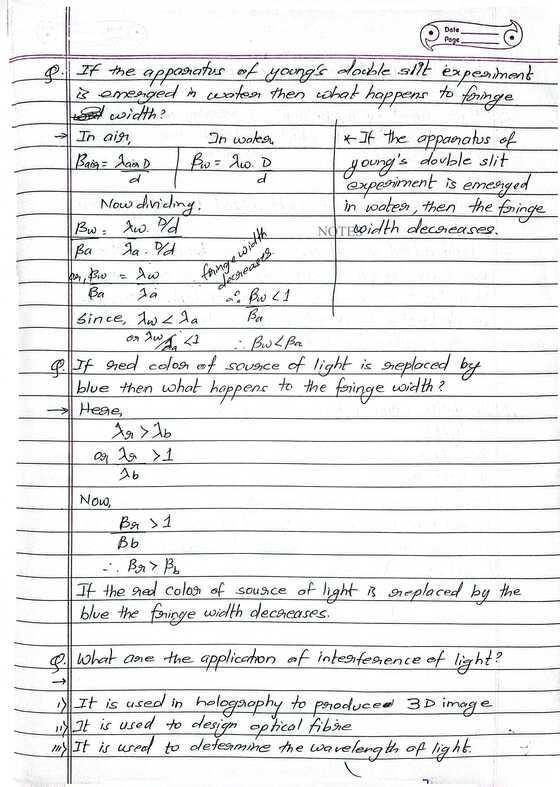 Date
Page
Q. If the apparatus of young's double slit experiment
is emerged in water then what happens to fringe
width?
→ In air,
In water,
βair = λair D / d
βw = λw. D / d
Now dividing.
βw / βa = λw. D/d / λa. D/d
or, βw / βa = λw / λa
Since, λw < λa
or λw/λa < 1
fringe width
decreases.
∴ βw / βa < 1
∴ βw < βa
* If the apparatus of
young's double slit
experiment is emerged
in water, then the fringe
width decreases.
NOTES
Q. If red color of source of light is replaced by
blue then what happens to the fringe width?
→ Here,
λr > λb
or λr / λb > 1
Now,
βr / βb > 1
∴ βr > βb
If the red color of source of light is replaced by the
blue the fringe width decreases.
Q. What are the application of interference of light?
→
i) It is used in holography to produced 3D image
ii) It is used to design optical fibre
iii) It is used to determine the wavelength of light.